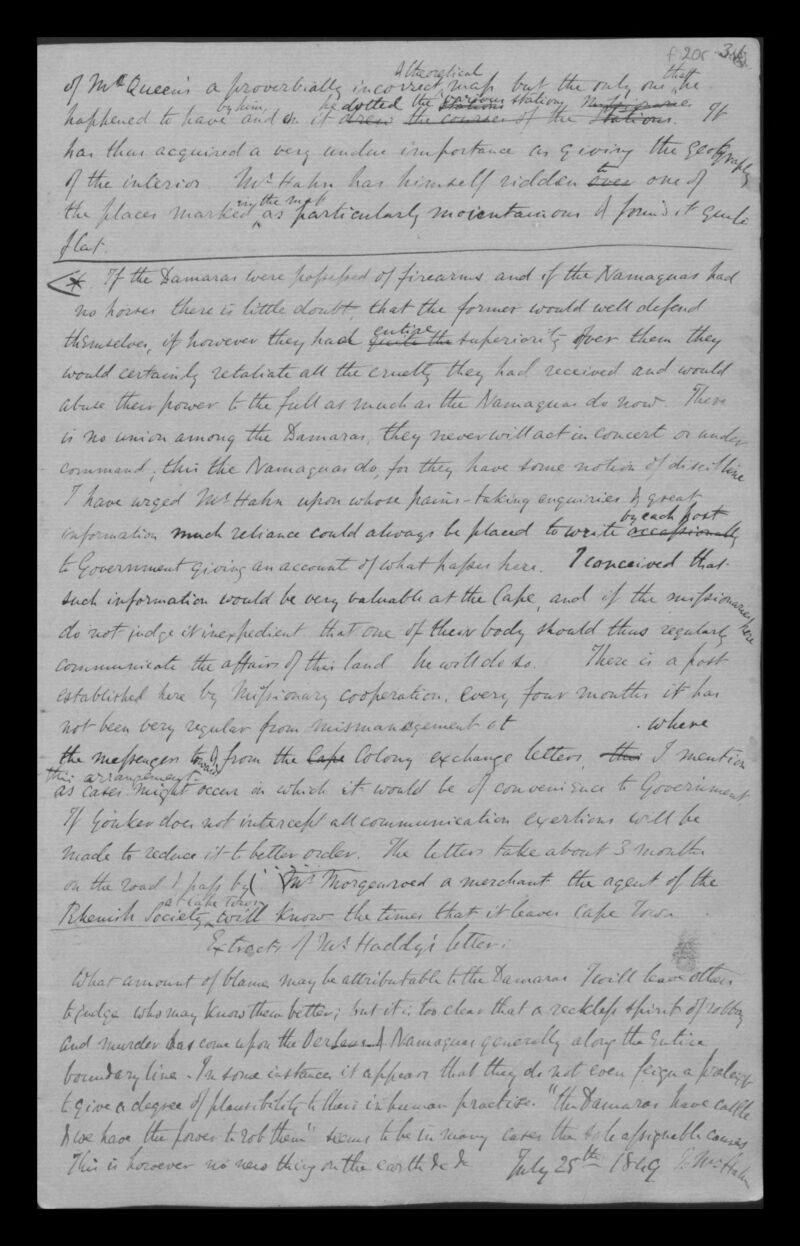 f 20r 36
of McQueen's a proverbially incorrect, & theoretical map but the only one that he
happened to have by him, and on it he dotted the various stations drew the courses of the stations. It
has thus acquired a very undue importance as giving the geography
of the interior Mr Hahn has himself ridden to over one of
the places marked in the map as particularly mountainous & found it quite
flat.
* If the Damaras were possessed of firearms and if the Namaquas had
no horses there is little doubt, that the former would well defend
themselves, if however they had entire quite the superiority over them they
would certainly retaliate all the cruelty they had received and would
abuse their power to the full as much as the Namaquas do now. There
is no union among the Damaras, they never will act in concert or under
command; this the Namaquas do, for they have some notion of discipline
I have urged Mr Hahn upon whose pains-taking enquiries & great
information much reliance could always be placed to write by each post occassionally
to Government giving an account of what passes here. I conceived that
such information would be very valuable at the Cape, and if the missionaries here
do not judge it inexpedient that one of their body should thus regularly
communicate the affairs of this land he will do so. There is a post
established here by Missionary cooperation, every four months it has
not been very regular from mismanagement at . where
the messengers to & from the Cape Colony exchange letters, this I mention
this arrangement
as cases might occur in which it would be of convenience to Government
If Jonker does not intercept all communication exertions will be
made to reduce it to better order. The letters take about 3 months
on the road & pass by ( Mr Morgenrood a merchant the agent of the
Rhenish Society at Cape Town will know the times that it leaves Cape Town.
Extracts of Mr Haddy's letter:
What amount of blame may be attributable to the Damaras I will leave others
to judge who may know them better; but it is too clear that a reckless spirit of robbery
and murder has come upon the & Namaquas generally along the entire
boundary line. In some instances it appears that they do not even feign a pretext
to give a degree of plausibility to their inhuman practise. "the Damaras have cattle
& we have the power to rob them" seems to be in many cases the sole assignable causes
This is however no new thing on the earth &c & July 25th 1849 To Mr Hahn